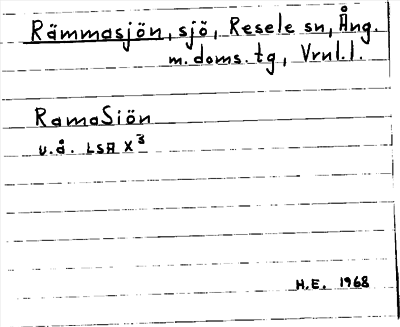 Rämmasjön, sjö, Resele sn, Ång.
m. doms. tg, Vrnl. l.
RamaSiön
u.å. LSA X3
H.E. 1968